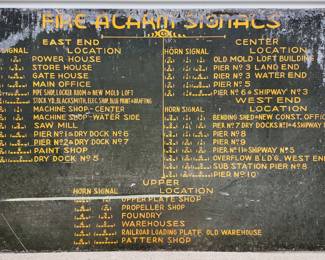 FIRE ALARM SIGNALS
EAST END
SIGNAL LOCATION
POWER HOUSE
STORE HOUSE
GATE HOUSE
MAIN OFFICE
PIPE SHOP, LOCKER ROOM & NEW MOLD LOFT
STOCK YD, BLACKSMITH, ELEC. SHOP, BLUE PRINT & DRAFTING
MACHINE SHOP-CENTER
MACHINE SHOP-WATER SIDE
SAW MILL
PIER Nº1 & DRY DOCK Nº6
PIER Nº2 & DRY DOCK Nº7
PAINT SHOP
DRY DOCK Nº5
CENTER
HORN SIGNAL LOCATION
OLD MOLD LOFT BUILDING
PIER Nº3 LAND END
PIER Nº3 WATER END
PIER Nº5
PIER Nº6 & SHIPWAY Nº3
WEST END
HORN SIGNAL LOCATION
BENDING SHED & NEW CONST. OFFICE
PIER Nº7 DRY DOCKS Nº1-4 SHIPWAY
PIER Nº8
PIER Nº9
PIER Nº11 & SHIPWAY Nº5
OVERFLOW BLDG. WEST END
SUB STATION PIER Nº8
PIER Nº10
UPPER
HORN SIGNAL LOCATION
UPPER PLATE SHOP
PROPELLER SHOP
FOUNDRY
WAREHOUSES
RAILROAD LOADING PLATF. OLD WAREHOUSE
PATTERN SHOP